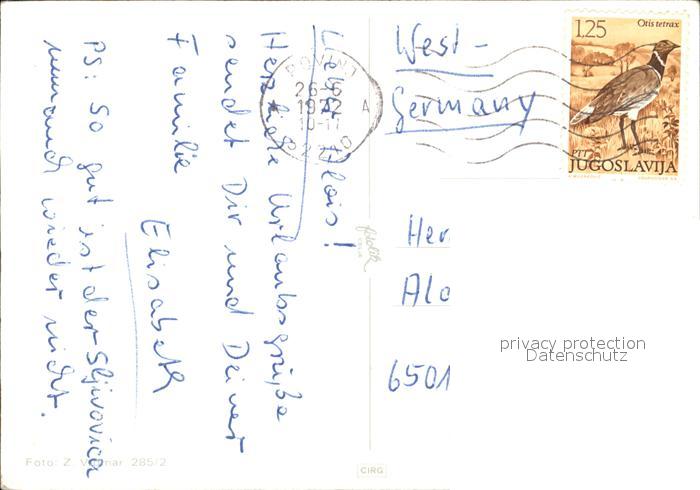 Lieber Alois!
Herzliche Urlaubsgrüße
sendet Dir und Deiner
Familie
Elisabeth
PS: So gut ist der Sljivovica
wieder nicht.
West-
Germany
Her
Alo
6501
privacy protection
Datenschutz
Otis tetrax
1,25
PTT
JUGOSLAVIJA
26-6
1972
A
10-11
Foto: Z. 285/2
CIRG